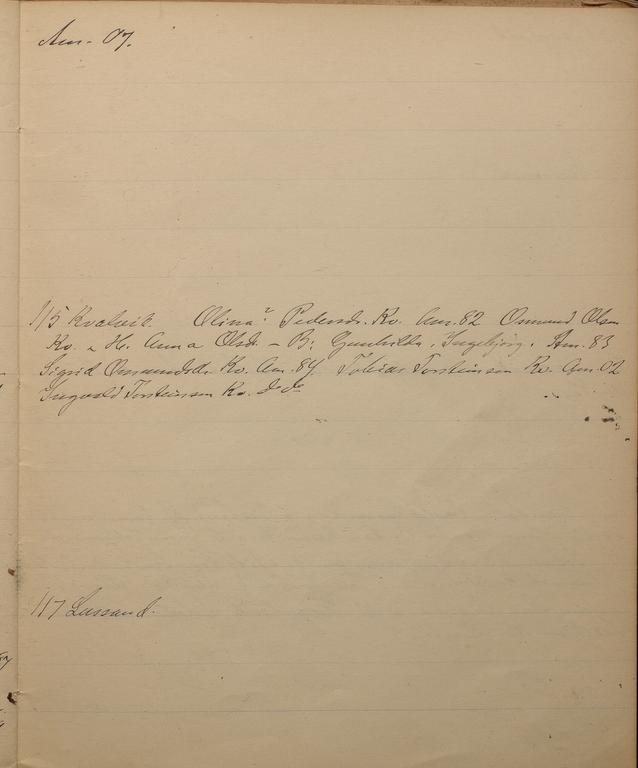 Am. 07.
115 Kvalvik. Olina? Pedersdr. Kv. Am. 82 Osmund Olsen
Kv. & H. Anna Olsdr. - B: Gunhilde, Ingebjörg. Am. 83
Sigrid Osmundsdr. Kv. Am. 84. Tobias Torsteinsen Kv. Am. 02
Ingvald Torsteinsen Kv. do do
117 Lussand.